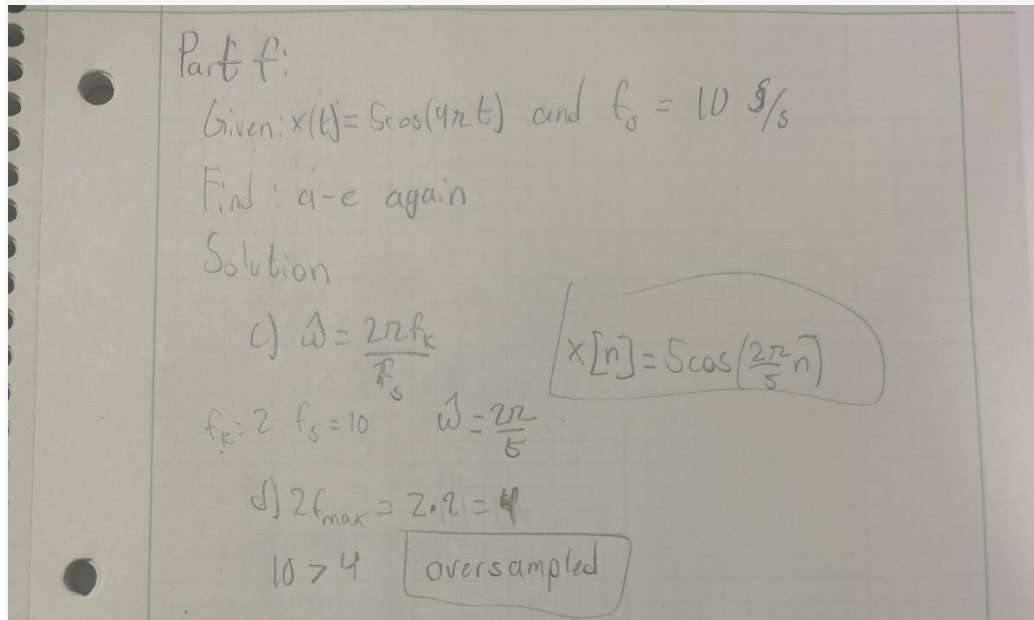 Part f:
Given: x(t) = 5cos(4π t) and fs = 10 S/s
Find: a-e again
Solution
c) ω̂ = 2πfk / fs
x[n] = 5cos(2π/5 n)
fk = 2 fs = 10 ω̂ = 2π/5
d) 2fmax = 2·2 = 4
10 > 4 oversampled